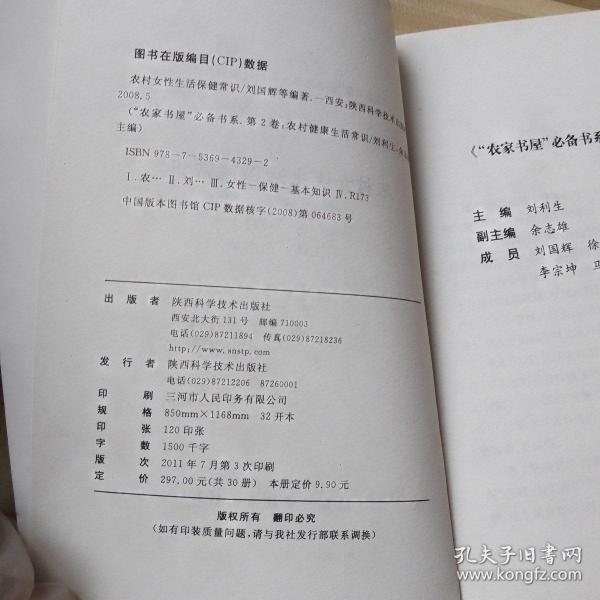 图书在版编目(CIP)数据
农村女性生活保健常识/刘国辉等编著.—西安:陕西科学技术出版
2008.5
(“农家书屋”必备书系.第2卷:农村健康生活常识/刘利生
主编)
ISBN 978-7-5369-4329-2
Ⅰ.农… Ⅱ.刘… Ⅲ.女性-保健-基本知识 Ⅳ.R173
中国版本图书馆CIP数据核字(2008)第064683号
出版者 陕西科学技术出版社
西安北大街131号 邮编710003
电话(029)87211894 传真(029)87218236
http://www.snstp.com
发行者 陕西科学技术出版社
电话(029)87212206 87260001
印刷 三河市人民印务有限公司
规格 850mm×1168mm 32开本
印张 120印张
字数 1500千字
版次 2011年7月第3次印刷
定价 297.00元(共30册) 本册定价9.90元
版权所有 翻印必究
(如有印装质量问题,请与我社发行部联系调换)
《“农家书屋”必备书系
主编 刘利生
副主编 余志雄
成员 刘国辉 徐
李宗坤 马
孔夫子旧书网
www.kongfz.com